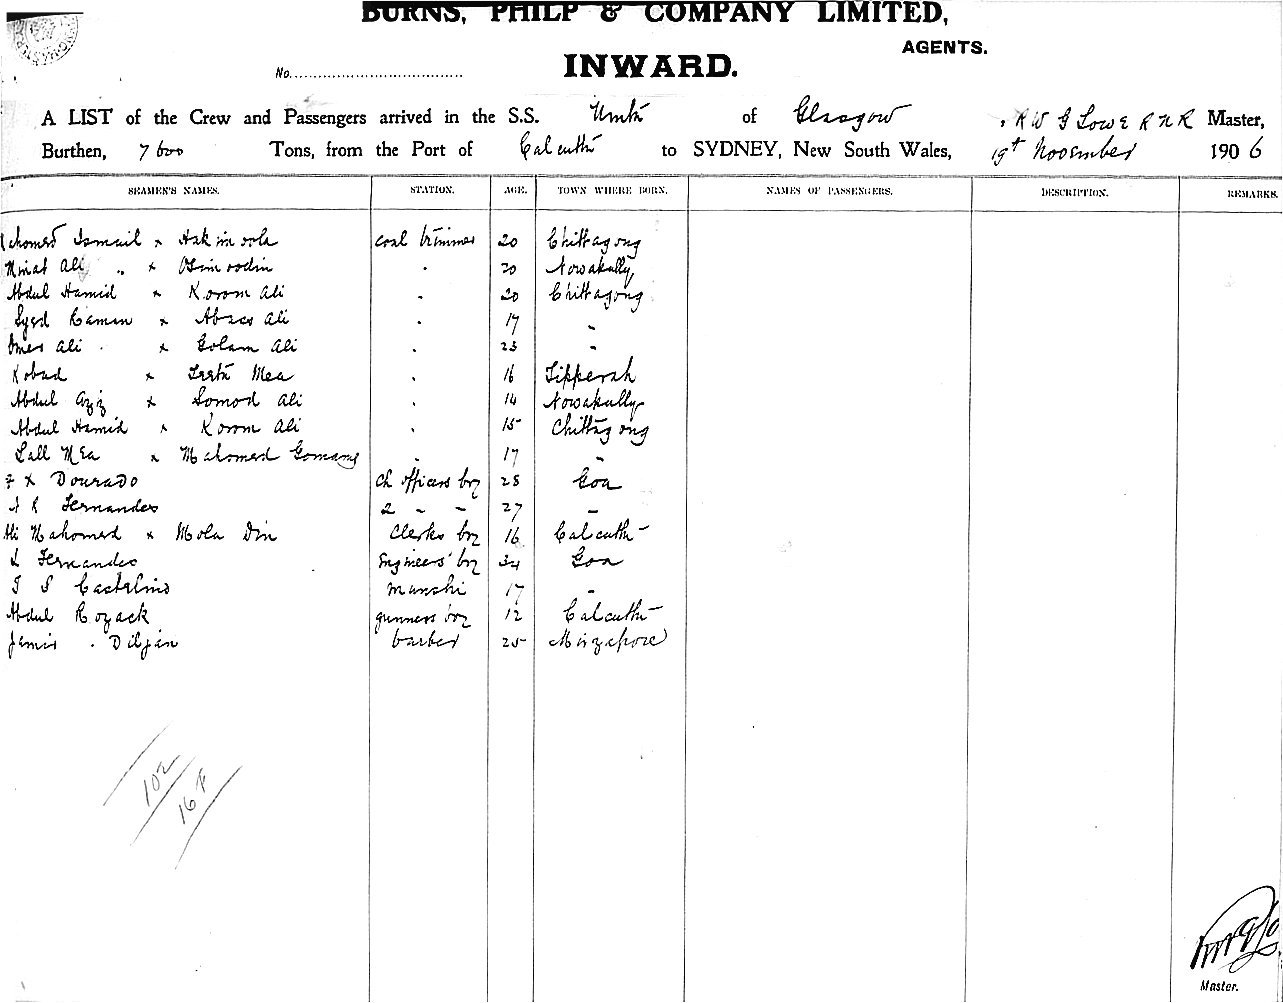 BURNS, PHILP & COMPANY LIMITED,
AGENTS.
INWARD.
No.
A LIST of the Crew and Passengers arrived in the S.S. Umta of Glasgow, R W G Lowe R N R Master,
Burthen, 7600 Tons, from the Port of Calcutta to SYDNEY, New South Wales, 19th November 1906
SEAMEN'S NAMES. STATION. AGE. TOWN WHERE BORN. NAMES OF PASSENGERS. DESCRIPTION. REMARKS.
Ismail x coal trimmer 20 Chittagong
Ali " x 20 Nowakully
Abdul Hamid x Korom Ali " 20 Chittagong
Syed x Abas Ali " 17 "
Omer Ali x Golam Ali " 23 "
Kobad x Mea " 16 Tipperah
Abdul Aziz x Somod Ali " 14 Nowakully
Abdul Hamid x Korom Ali " 15 Chittagong
Lall Mea x Mahomed " 17 "
F X Dourado Ch officers boy 28 Goa
A R Fernandes 2 " " 27 "
Ali Mahomed x Mola Din Clerks boy 16 Calcutta
L Fernandes Engineers' boy 34 Goa
17 "
Abdul Rozack gunners boy 12 Calcutta
Diljan barber 25 Mirzapore
102
16 F
Master.